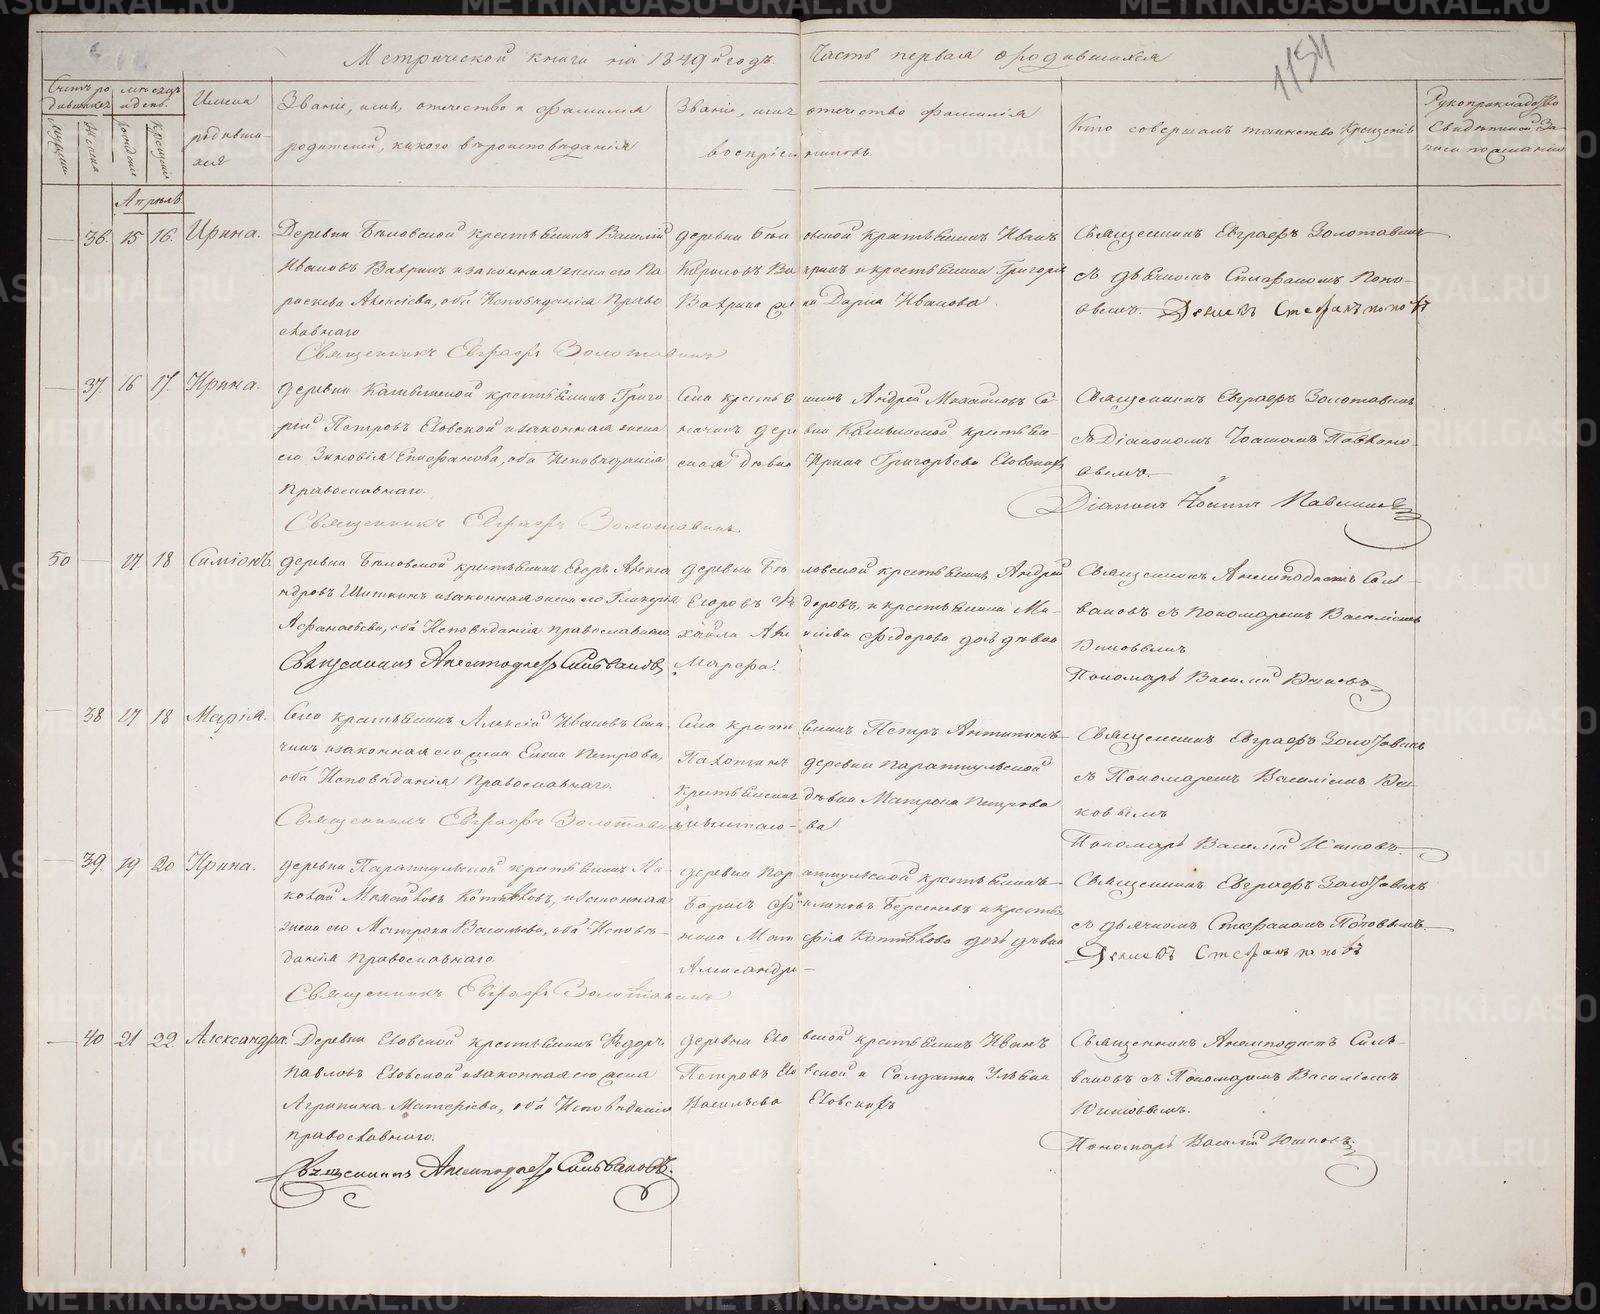 Метрической книги на 1849й годъ.
Часть первая о родившихся
1154
Счетъ родившихся
Мужеска
Женска
Месяцъ и день.
рожденія
крещенія
Имена родившихся
Званіе, имя, отечество и фамилія
родителей, какого вѣроисповѣданія
Званіе, имя отечество фамилія
воспріемниковъ.
Кто совершалъ таинство крещенія
Рукоприкладство
свидѣтелей за-
писи по желанію
Апрѣль
36. 15 16. Ирина.
Деревни Бѣловской крестьянинъ Василій
Ивановъ Вахринъ и законная жена его Па
раскева Алексіева, оба Исповѣданія Право
славнаго
Священникъ Евграфъ Золотавинъ
деревни Бѣловской крестьянинъ Иванъ
Карповъ Вахринъ и крестьянина Григорья
Вахрина жена Дарья Иванова
Священникъ Евграфъ Золотавинъ
съ дьячкомъ Стефаномъ Попо-
вымъ. Дьячекъ Стефанъ Поповъ
37. 16 17. Ирина.
деревни крестьянинъ Григо
рій Петровъ Еховской и законная жена
его Зиновія Епифанова, оба Исповѣданія
Православнаго.
Священникъ Евграфъ Золотавинъ
Села крестьянинъ Андрей Михайловъ Се
деревни крестьян-
ская дѣвка Ирина Григорьева Еховскихъ
Священникъ Евграфъ Золотавинъ
съ Діакономъ Іоанномъ
Діаконъ Іоаннъ
50 17 18 Симіонъ.
деревни Бѣловской крестьянинъ Егоръ Алекса
ндровъ Шиткинъ и законная жена его Гликерія
Афанасьева, оба Исповѣданія православнаго
Священникъ Анемподистъ Сильвановъ
деревни Бѣловской крестьянинъ Андрей
Егоровъ Федоровъ, и крестьянина Ми-
хайла Федорова дочь дѣвка
Марфа.
Священникъ Анемподистъ Силь-
вановъ съ Пономаремъ Василіемъ
Пономарь Василій
38 17 18 Марія.
Села крестьянинъ Алексій Ивановъ
и законная его жена Елена Петрова,
оба Исповѣданія Православнаго.
Священникъ Евграфъ Золотавинъ
Села крестьянинъ Петръ Антипинъ
Пахоткинъ деревни Паратульской
крестьянская дѣвка Матрона Петрова
Священникъ Евграфъ Золотавинъ
съ Пономаремъ Василіемъ
Пономарь Василій
39. 19 20 Ирина.
деревни Паратульской крестьянинъ Ни-
колай Михайловъ Котяковъ, и законная
жена его Матрона Васильева, оба Исповѣ-
данія православнаго
Священникъ Евграфъ Золотавинъ
деревни Паратульской крестьянинъ
Борисъ Филиповъ Берсеневъ и крестья-
нина Котякова дочь дѣвка
Александра
Священникъ Евграфъ Золотавинъ
съ дьячкомъ Стефаномъ Поповымъ
Дьячекъ Стефанъ Поповъ
40 21 22 Александра.
Деревни Еховской крестьянинъ Ѳедоръ
Павловъ Еховской и законная его жена
Агрипина Матфіева, оба Исповѣданія
православнаго.
Священникъ Анемподистъ Сильвановъ.
деревни Еховской крестьянинъ Иванъ
Петровъ Еховской и Солдатка Ульяна
Васильева Еховскихъ
Священникъ Анемподистъ Силь-
вановъ съ Пономаремъ Василіемъ
Пономарь Василій
METRIKI.GASO-URAL.RU